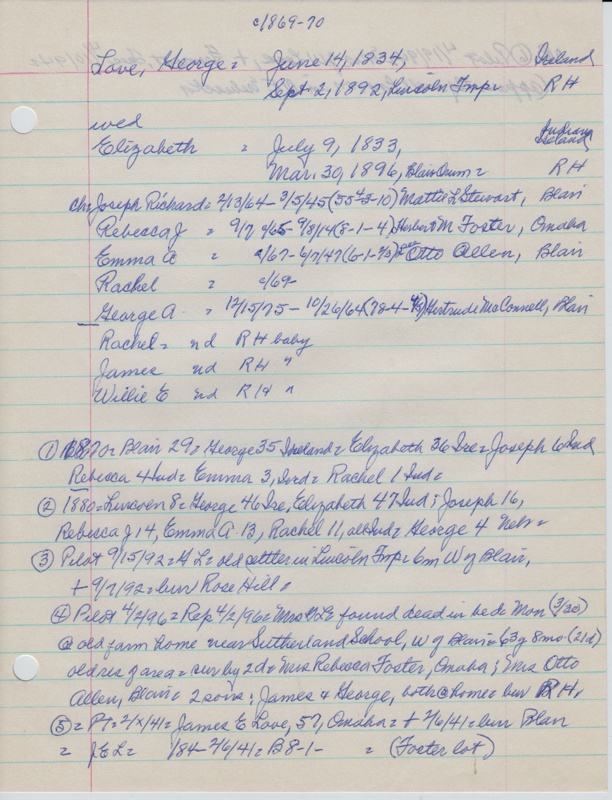 c/869-70
Love, George = June 14, 1834, Ireland
Sept 2, 1892, Lincoln Twp = R H
wed
Elizabeth = July 9, 1833, Indiana Ireland
Mar. 30, 1896, Blair = R H
ch: Joseph Richard = 2/13/64 - 3/5/45 Mattie L Stewart, Blair
Rebecca J = 9/7 c/65 - 9/8/14 (8-1-4) Herbert M Foster, Omaha
Emma A = c/67 - 6/7/47 Otto Allen, Blair
Rachel = c/69-
George A = 12/15/75 - 10/26/64 Gertrude McConnell, Blair
Rachel = nd R H baby
James nd R H "
Willie E nd R H "
① 1870 = Blair 29 = George 35 Ireland = Elizabeth 36 Ire = Joseph 6 Ind
Rebecca 4 Ind = Emma 3, Ind = Rachel 1 Ind =
② 1880 = Lincoln 8 = George 46 Ire, Elizabeth 47 Ind; Joseph 16,
Rebecca J 14, Emma A 13, Rachel 11, all Ind = George 4 Neb =
③ Pilot 9/15/92 = G L = old settler in Lincoln Twp = 6m W of Blair,
+ 9/2/92 = burr Rose Hill =
④ Pilot 4/2/96 = Rep 4/2/96 = Mrs G L = found dead in bed = Mon (3/30)
@ old farm home near Sutherland School, W of Blair = 63y 8mo (21d)
old res of area = sur by 2d = Mrs Rebecca Foster, Omaha; Mrs Otto
Allen, Blair = 2 sons; James & George, both @ home = burr R H,
⑤ = PT = 2/x/41 = James E Love, 57, Omaha = + 2/6/41 = burr Blair
= J E L = 184- 2/6/41 = B 8-1- = (Foster lot)